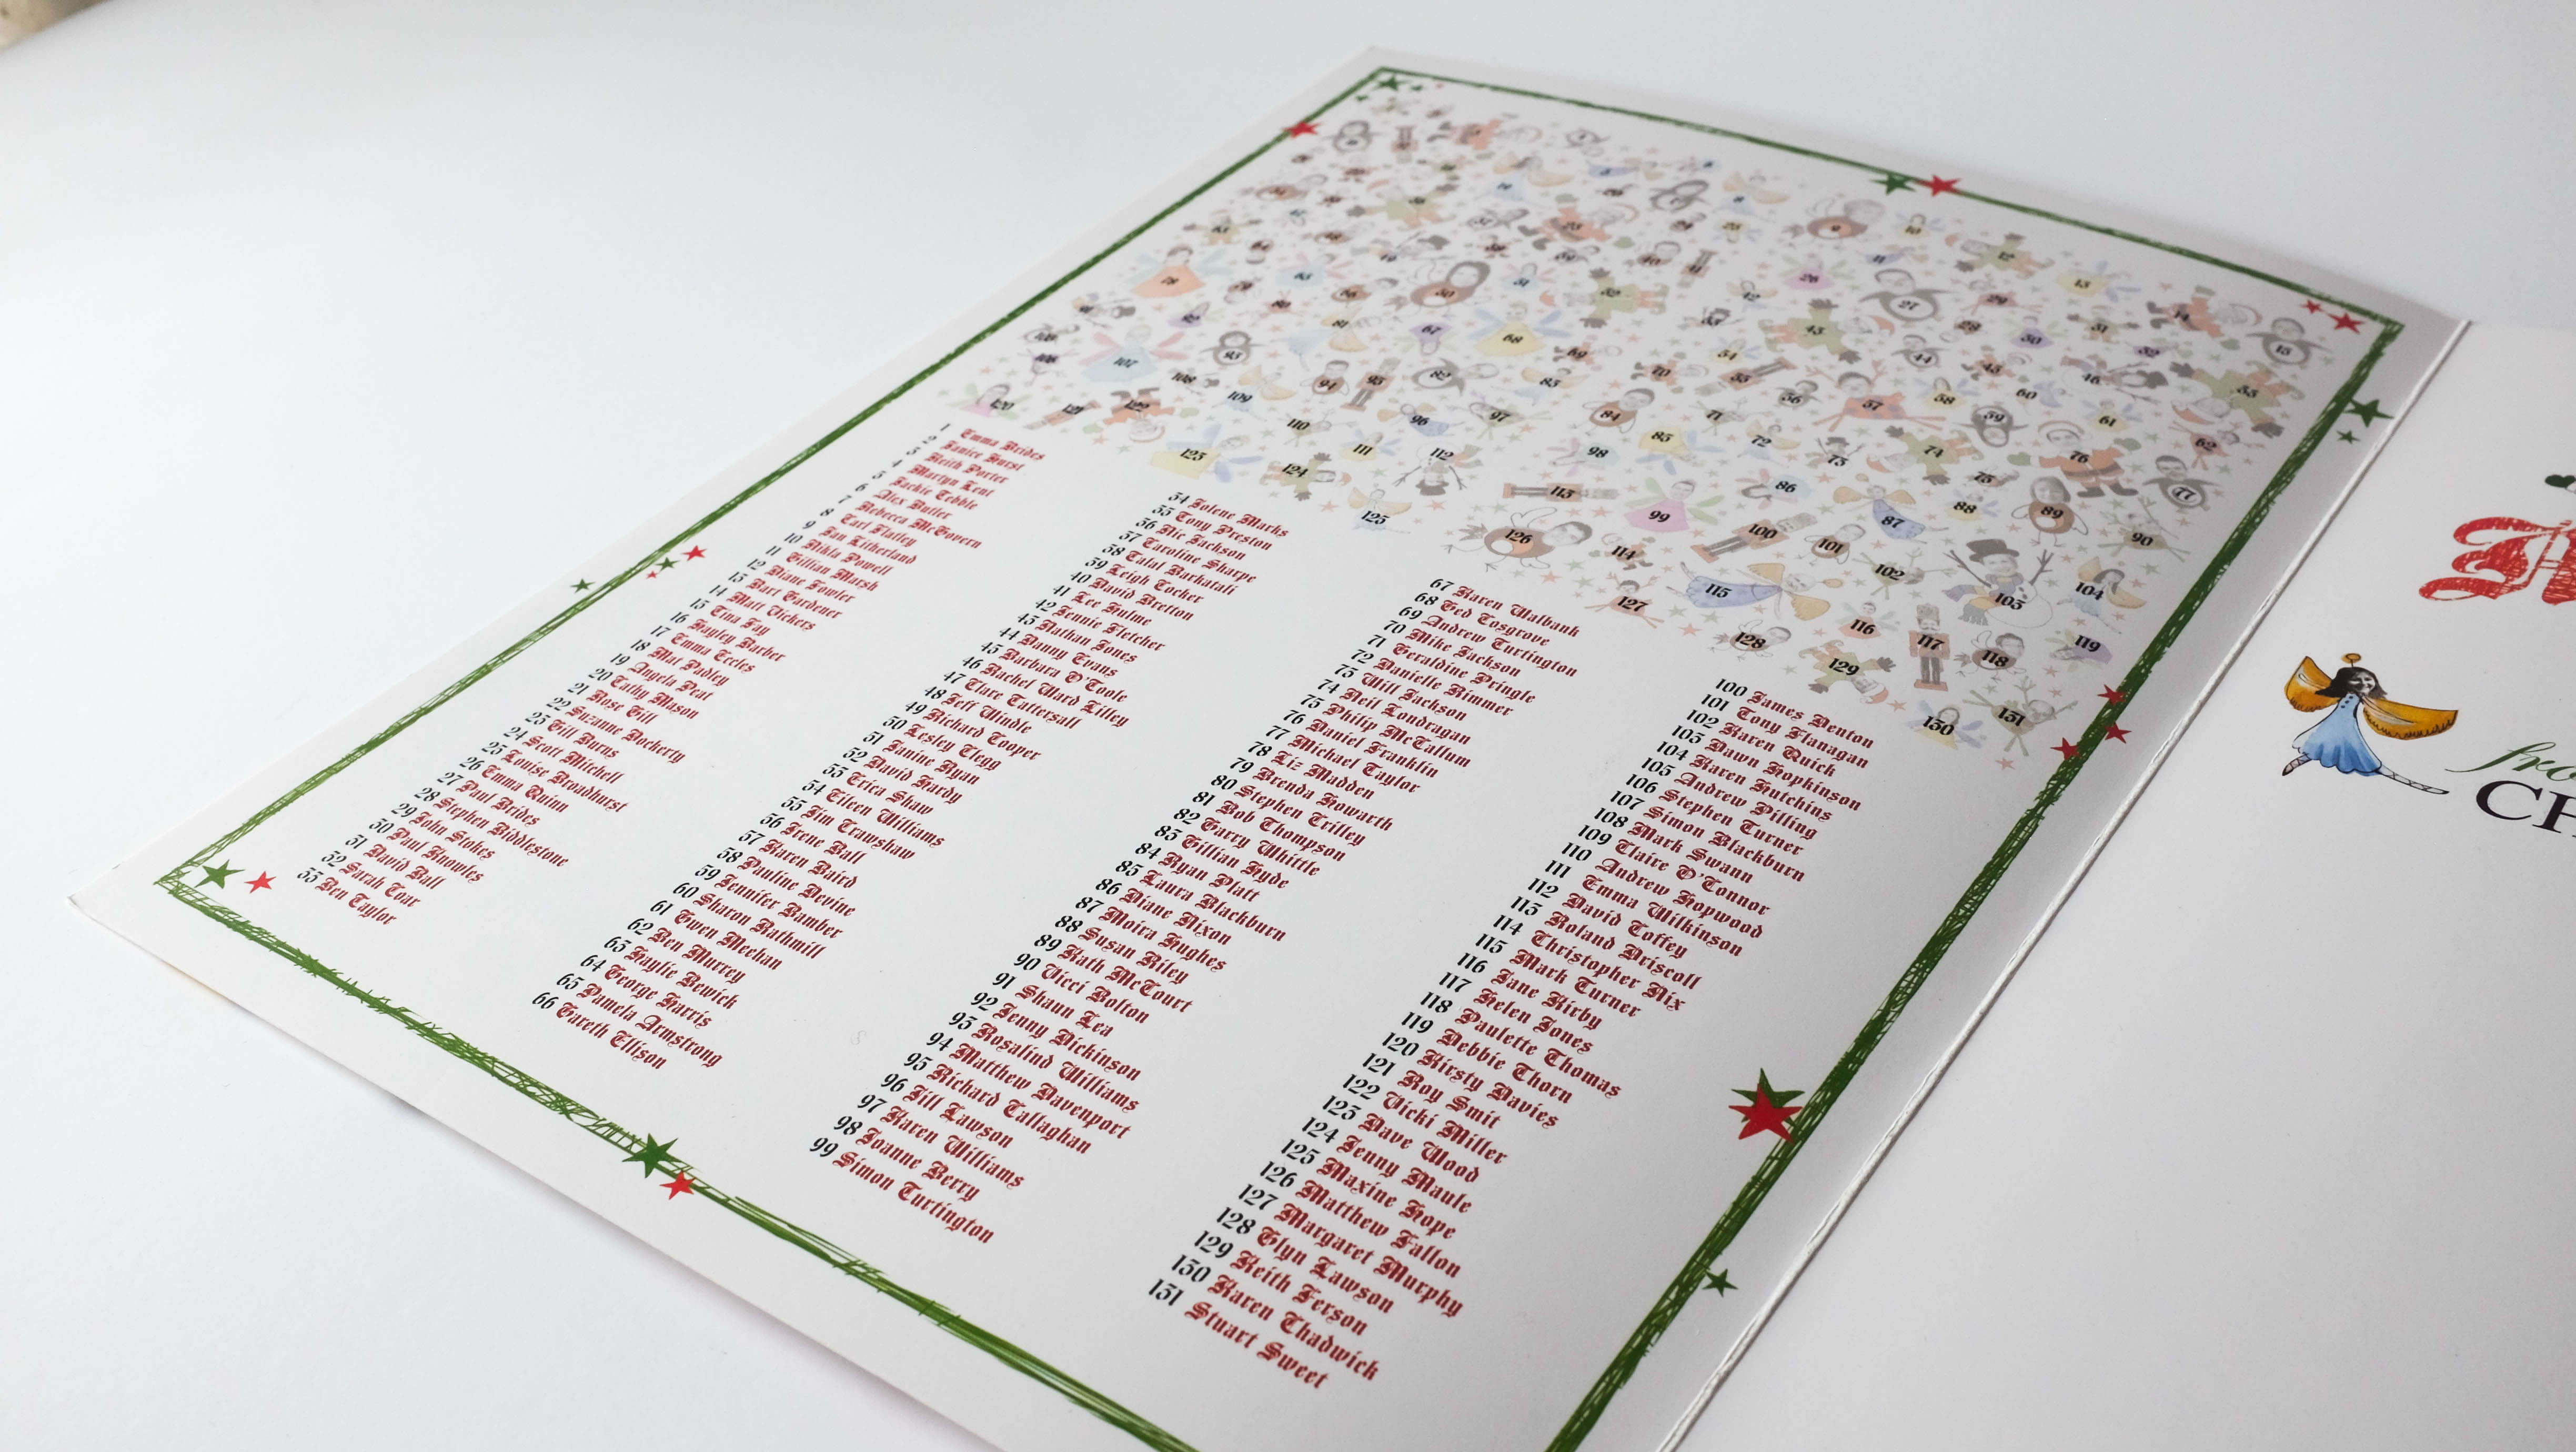 1 Emma Brides
2 Janice Hurst
3 Keith Porter
4 Martyn Lent
5 Jackie Tebble
6 Alex Butler
7 Rebecca McGovern
8 Carl Flatley
9 Ian Litherland
10 Nikla Powell
11 Gillian Marsh
12 Diane Fowler
13 Bart Gardener
14 Matt Vickers
15 Tina Fay
16 Hayley Barber
17 Emma Eccles
18 Mat Padley
19 Angela Peat
20 Cathy Mason
21 Rose Gill
22 Suzanne Docherty
23 Gill Burns
24 Scott Mitchell
25 Louise Broadhurst
26 Emma Quinn
27 Paul Brides
28 Stephen Biddlestone
29 John Stokes
30 Paul Knowles
31 David Ball
32 Sarah Coar
33 Ben Taylor
34 Jolene Marks
35 Tony Preston
36 Nic Jackson
37 Caroline Sharpe
38 Talal Barkatali
39 Leigh Corker
40 David Bretton
41 Lee Hulme
42 Jennie Fletcher
43 Nathan Jones
44 Danny Evans
45 Barbara O'Toole
46 Rachel Ward Lilley
47 Clare Tattersall
48 Jeff Windle
49 Richard Cooper
50 Lesley Clegg
51 Janine Ryan
52 David Hardy
53 Erica Shaw
54 Eileen Williams
55 Jim Crawshaw
56 Irene Ball
57 Karen Baird
58 Pauline Devine
59 Jennifer Bamber
60 Sharon Rathmill
61 Gwen Meehan
62 Ben Murrey
63 Kaylie Bewick
64 George Harris
65 Pamela Armstrong
66 Gareth Ellison
67 Karen Walbank
68 Ged Cosgrove
69 Andrew Turtington
70 Mike Jackson
71 Geraldine Pringle
72 Danielle Rimmer
73 Wilf Jackson
74 Neil Londragan
75 Philip McCallum
76 Daniel Franklin
77 Michael Taylor
78 Liz Madden
79 Brenda Howarth
80 Stephen Crilley
81 Bob Thompson
82 Garry Whittle
83 Gillian Hyde
84 Ryan Platt
85 Laura Blackburn
86 Diane Nixon
87 Moira Hughes
88 Susan Riley
89 Kath McCourt
90 Vicci Bolton
91 Shaun Lea
92 Jenny Dickinson
93 Rosalind Williams
94 Matthew Davenport
95 Richard Callaghan
96 Jill Lawson
97 Karen Williams
98 Joanne Berry
99 Simon Turtington
100 James Denton
101 Tony Flanagan
102 Karen Quick
103 Dawn Hopkinson
104 Karen Hutchins
105 Andrew Pilling
106 Stephen Turner
107 Simon Blackburn
108 Mark Swann
109 Claire O'Connor
110 Andrew Hopwood
111 Emma Wilkinson
112 David Coffey
113 Roland Driscoll
114 Christopher Nix
115 Mark Turner
116 Jane Kirby
117 Helen Jones
118 Paulette Thomas
119 Debbie Thorn
120 Kirsty Davies
121 Roy Smit
122 Vicki Miller
123 Dave Wood
124 Jenny Maule
125 Maxine Hope
126 Matthew Fallon
127 Margaret Murphy
128 Glyn Lawson
129 Keith Ferson
130 Karen Chadwick
131 Stuart Sweet